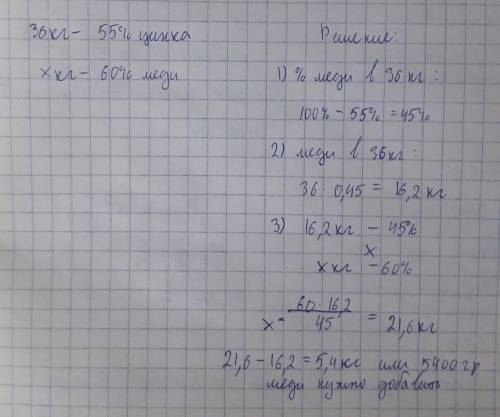 36кг - 55% цинка
x кг - 60% меди
Решение:
1) % меди в 36 кг :
100% - 55% = 45%
2) меди в 36кг :
36 · 0,45 = 16,2 кг
3) 16,2 кг - 45%
x
x кг - 60%
x = 60 · 16,2 / 45 = 21,6 кг
21,6 - 16,2 = 5,4 кг или 5400 гр
меди нужно добавить